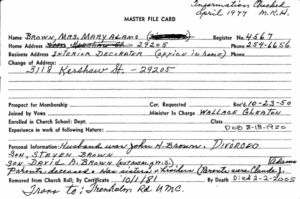 Information Checked
April 1977 M.R.H.
MASTER FILE CARD
Name Brown, Mrs. Mary Adams Register No. 4667
Home Address 29205 Phone 254-6656
Business Address Interior Decorator (office in home) Phone
Change of Address:
3118 Kershaw St. - 29205
Prospect for Membership Cor. Requested Rec'd 10-23-50
Joined by Vows Minister In Charge Wallace
Enrolled in Church School: Dept. Class
Experience in work of Nature: DOB 8-18-1920
Personal Information: Husband was John H. Brown. Divorced
Son, Steven Brown
Son, David A. Brown
Adams
Parents deceased. Has sisters & brothers (Parents were
Removed from Church Roll: By Certificate 10/1/81 By Death Died 2-2-2005
Trans to: Trenholm Rd UMC.